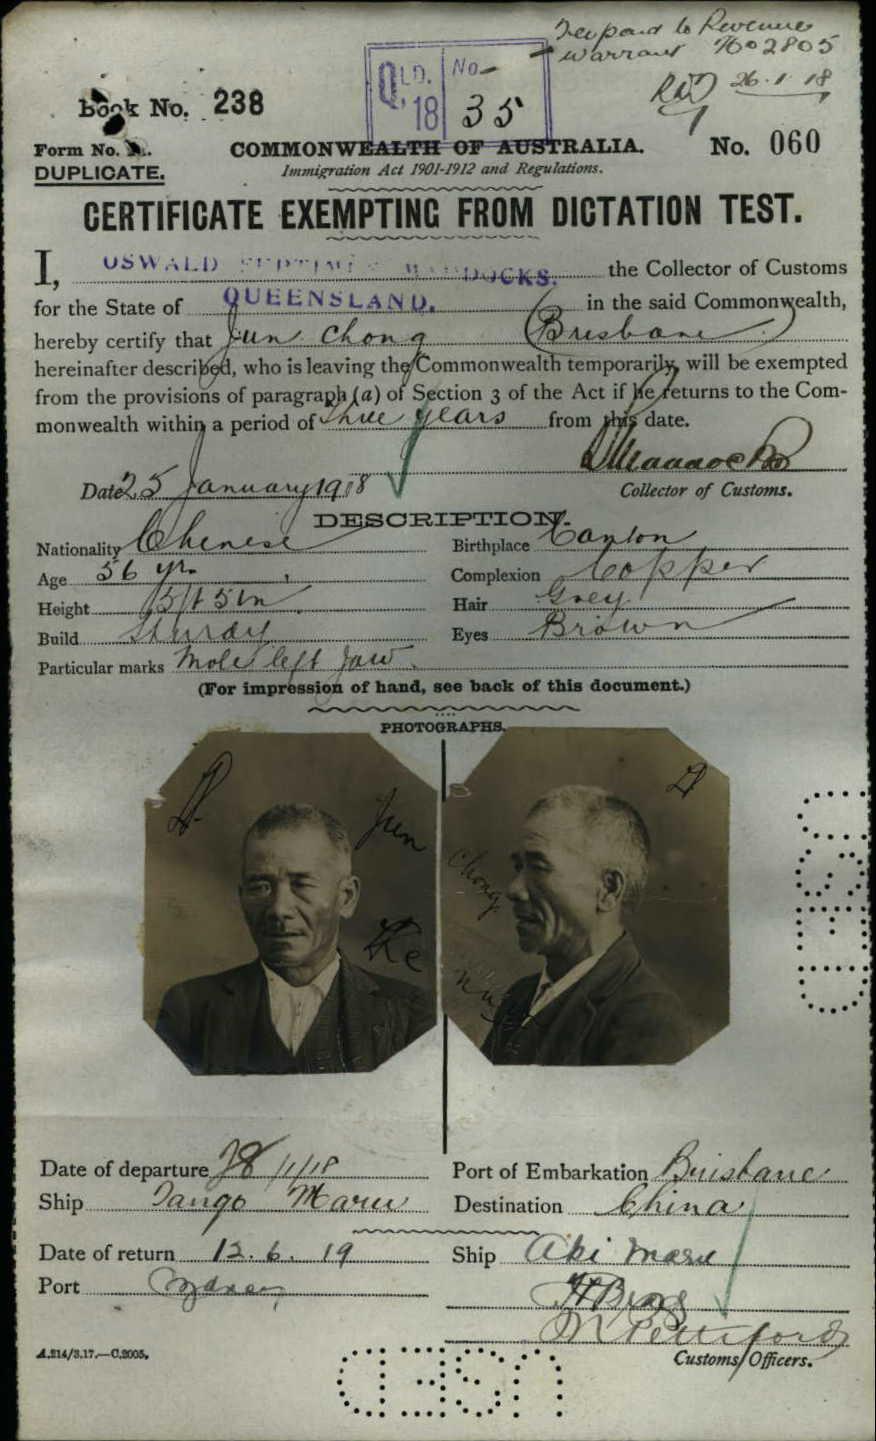 Fee paid to Revenue
Warrant No 2805
26.1.18
Book No. 238
QLD. No.
18 35
Form No.
COMMONWEALTH OF AUSTRALIA.
No. 060
DUPLICATE.
Immigration Act 1901-1912 and Regulations.
CERTIFICATE EXEMPTING FROM DICTATION TEST.
I, OSWALD SEPTIMUS MADDOCKS. the Collector of Customs
for the State of QUEENSLAND. in the said Commonwealth,
hereby certify that Jun Chong (Brisbane)
hereinafter described, who is leaving the Commonwealth temporarily, will be exempted
from the provisions of paragraph (a) of Section 3 of the Act if he returns to the Com-
monwealth within a period of three years from this date.
Date 25 January 1918
Collector of Customs.
DESCRIPTION.
Nationality Chinese Birthplace Canton
Age 56 yrs Complexion Copper
Height 5 ft 5 in Hair Grey
Build Sturdy Eyes Brown
Particular marks Mole left Jaw.
(For impression of hand, see back of this document.)
PHOTOGRAPHS.
Jun
Chong
Date of departure 28/1/18 Port of Embarkation Brisbane
Ship Tango Maru Destination China
Date of return 12.6.19 Ship Aki Maru
Port Sydney
Customs Officers.
A.214/3.17.—C.2005.
USED
USED